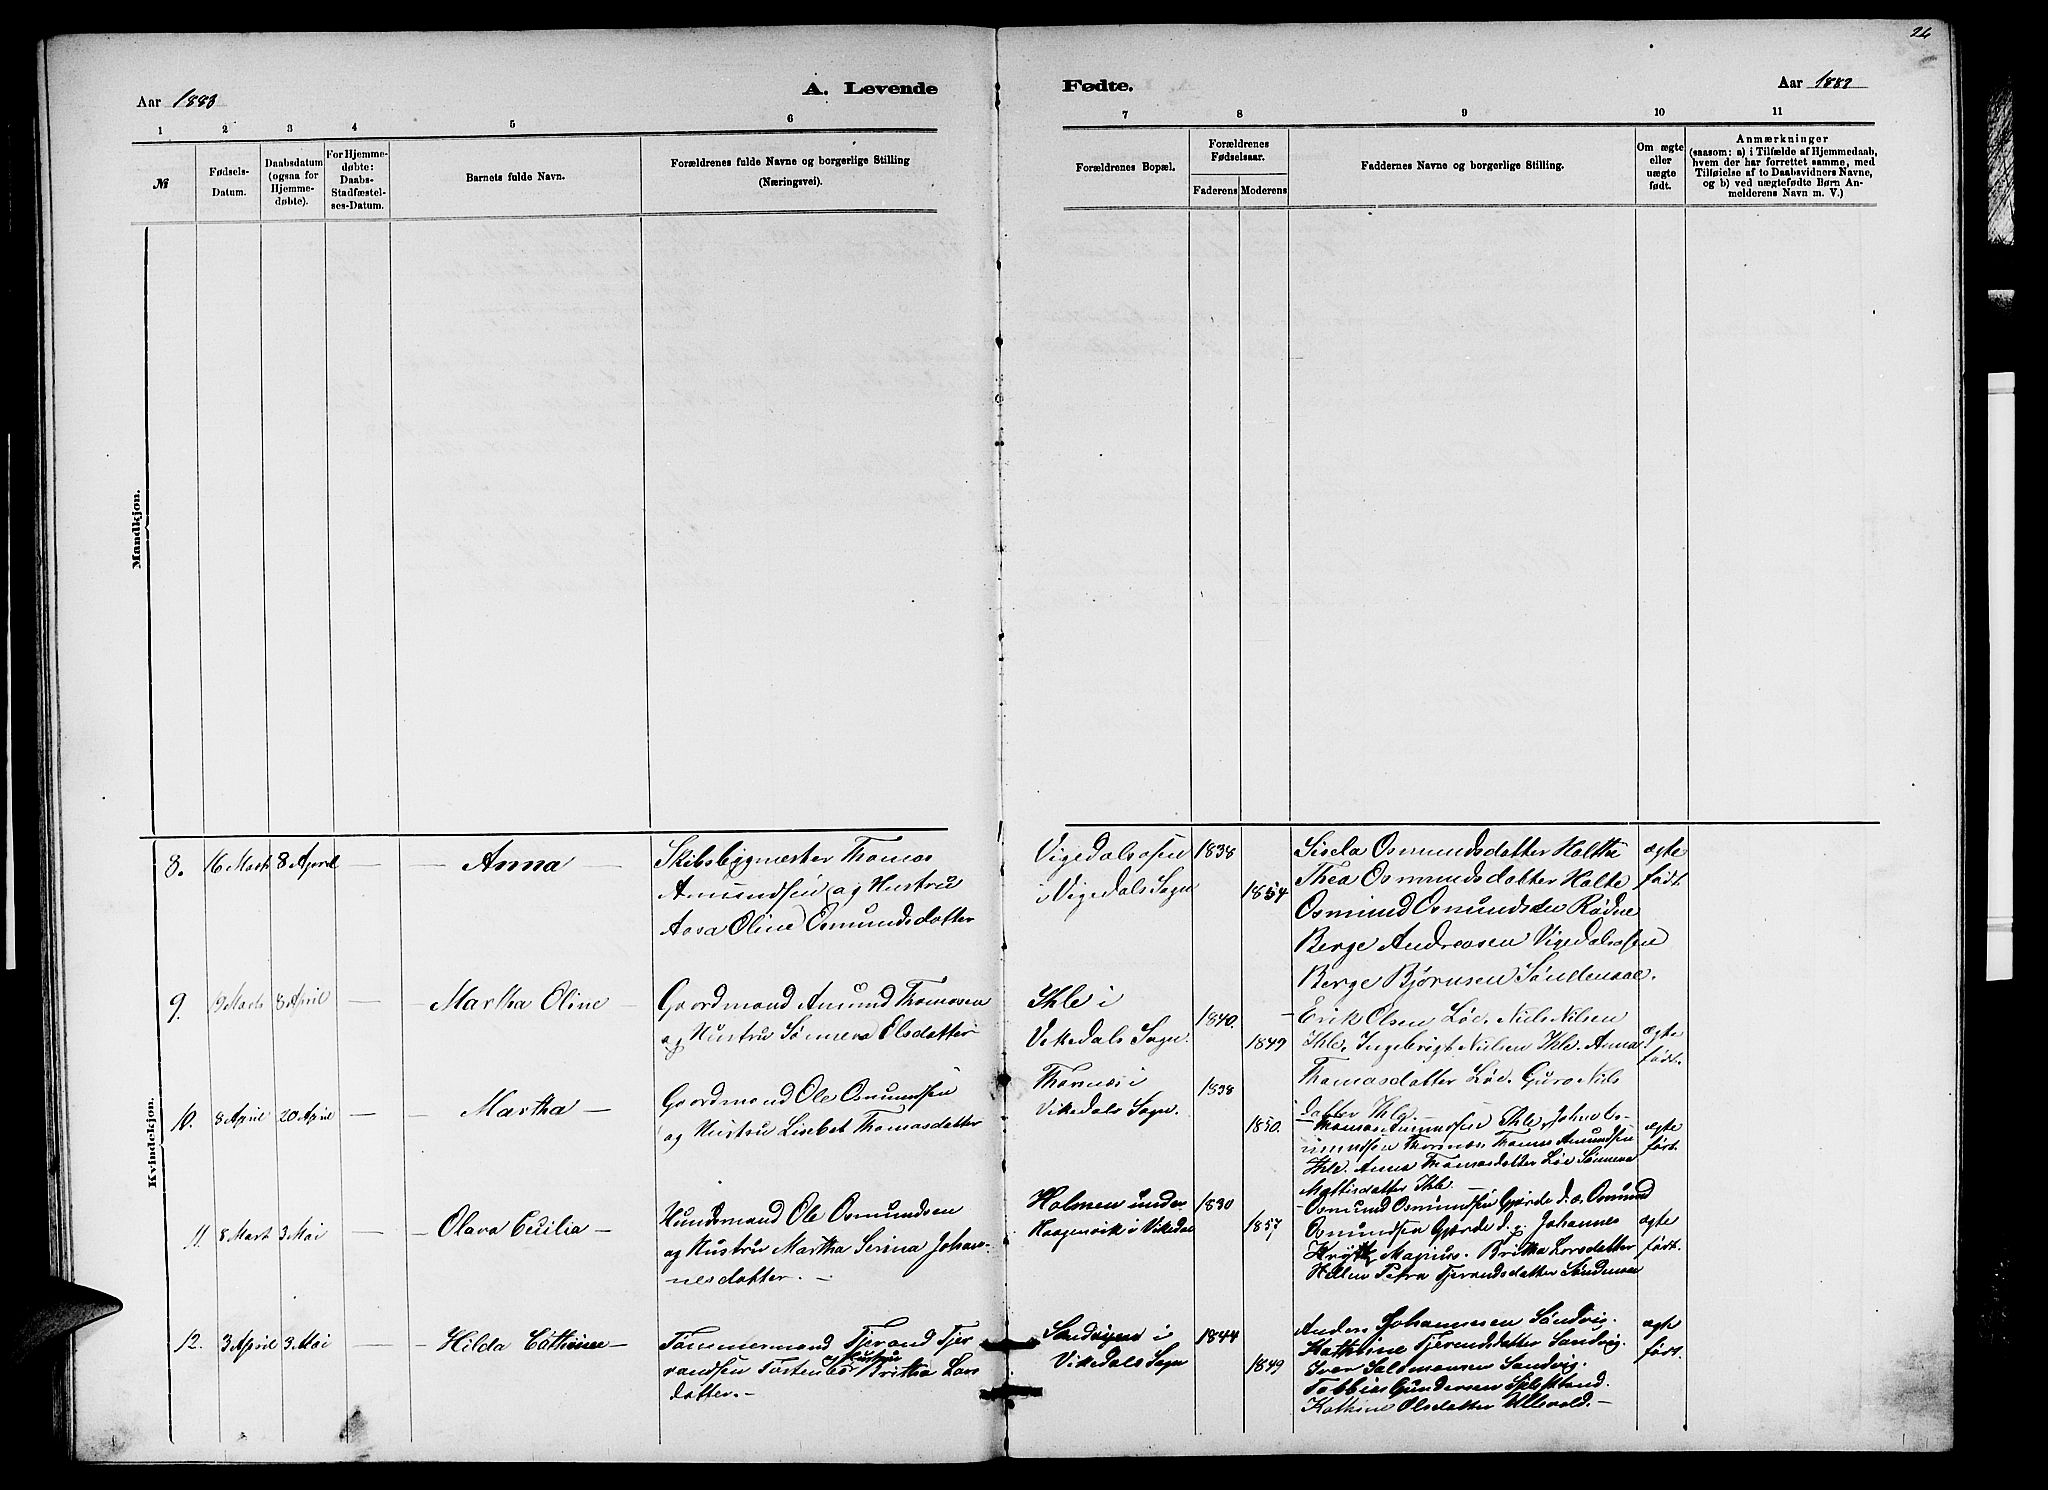 26
Aar 1883
A. Levende
Fødte.
Aar 1883
1 2 3 4 5 6 7 8 9 10 11
№
Fødsels-
Datum.
Daabsdatum
(ogsaa for
Hjemme-
døbte).
For Hjemme-
døbte:
Daabs-
Stadfæstel-
ses-Datum.
Barnets fulde Navn.
Forældrenes fulde Navne og borgerlige Stilling
(Næringsvei).
Forældrenes Bopæl.
Forældrenes
Fødselsaar.
Faderens Moderens
Faddernes Navne og borgerlige Stilling.
Om ægte
eller
uægte
født.
Anmærkninger
(saasom: a) i Tilfælde af Hjemmedaab,
hvem der har forrettet samme, med
Tilføielse af to Daabsvidners Navne,
og b) ved uægtefødte Børn An-
melderens Navn m. V.)
Mandkjøn.
Kvindekjøn.
8. 16 Marts 8 April — — Anna —
Skibsbygmester Thomas
Amundsen og Hustru
Aasa Oline Osmundsdatter
Vigedalsosen
i Vigedals Sogn
1838
1854
Sisela Osmundsdatter Holthe
Thea Osmundsdatter Holte
Osmund Osmundsen Rødne
Berge Andreasen Vigedalsosen
Berge Bjørnsen Søndenaae.
ægte
født.
9. 19 Marts 8 April — Martha Oline —
Gaardmand Amund Thomasen
og Hustru Sønneva Elsdatter
Ihle i
Vikedals Sogn.
1840.
1849
— Erik Olsen Løe. Niels Nilsen
Ihle. Ingebrigt Nielsen Ihle. Anna
Thomasdatter Løe. Guro Niels
datter Ihle.
ægte
født.
10. 8 April 20 April — — Martha —
Gaardmand Ole Osmundsen
og Hustru Lisebet Thomasdatter
Thornæs i
Vikedals Sogn.
1838
1850.
— Thomas Amundsen Ihle, John Os-
mundsen Thornæs. Thomas Amundsen
Ihle. Anna Thomasdatter Løe Sønneva
Mattisdatter Ihle —
ægte
født.
11. 8 Mart 3 Mai — — Olava Cecilia —
Huusmand Ole Osmundsen
og Hustru Martha Serina Johan-
nesdatter. —
Holmen under
Haagenvik i Vikedal
1830
1857
— Osmund Osmundsen Gjerde d. æ. Osmund
Osmundsen Gjerde d. y. Johannes
Magnus. Britha Larsdatter
Petra Tjerandsdatter
ægte
født.
12. 3 April 3 Mai — — Hilda Cathrine —
Tømmermand Tjerand Tjer
andsen og Hustru Britha Lars
datter. —
Sandvigen i
Vikedals Sogn
1844
1849
Anders Johannesen Sandvig.
Kathrine Tjerandsdatter Sandvig.
Iver Salomonsen Sandvig.
Tobbias Gundersen
Kathrine Olsdatter Ullevold. —
ægte
født.